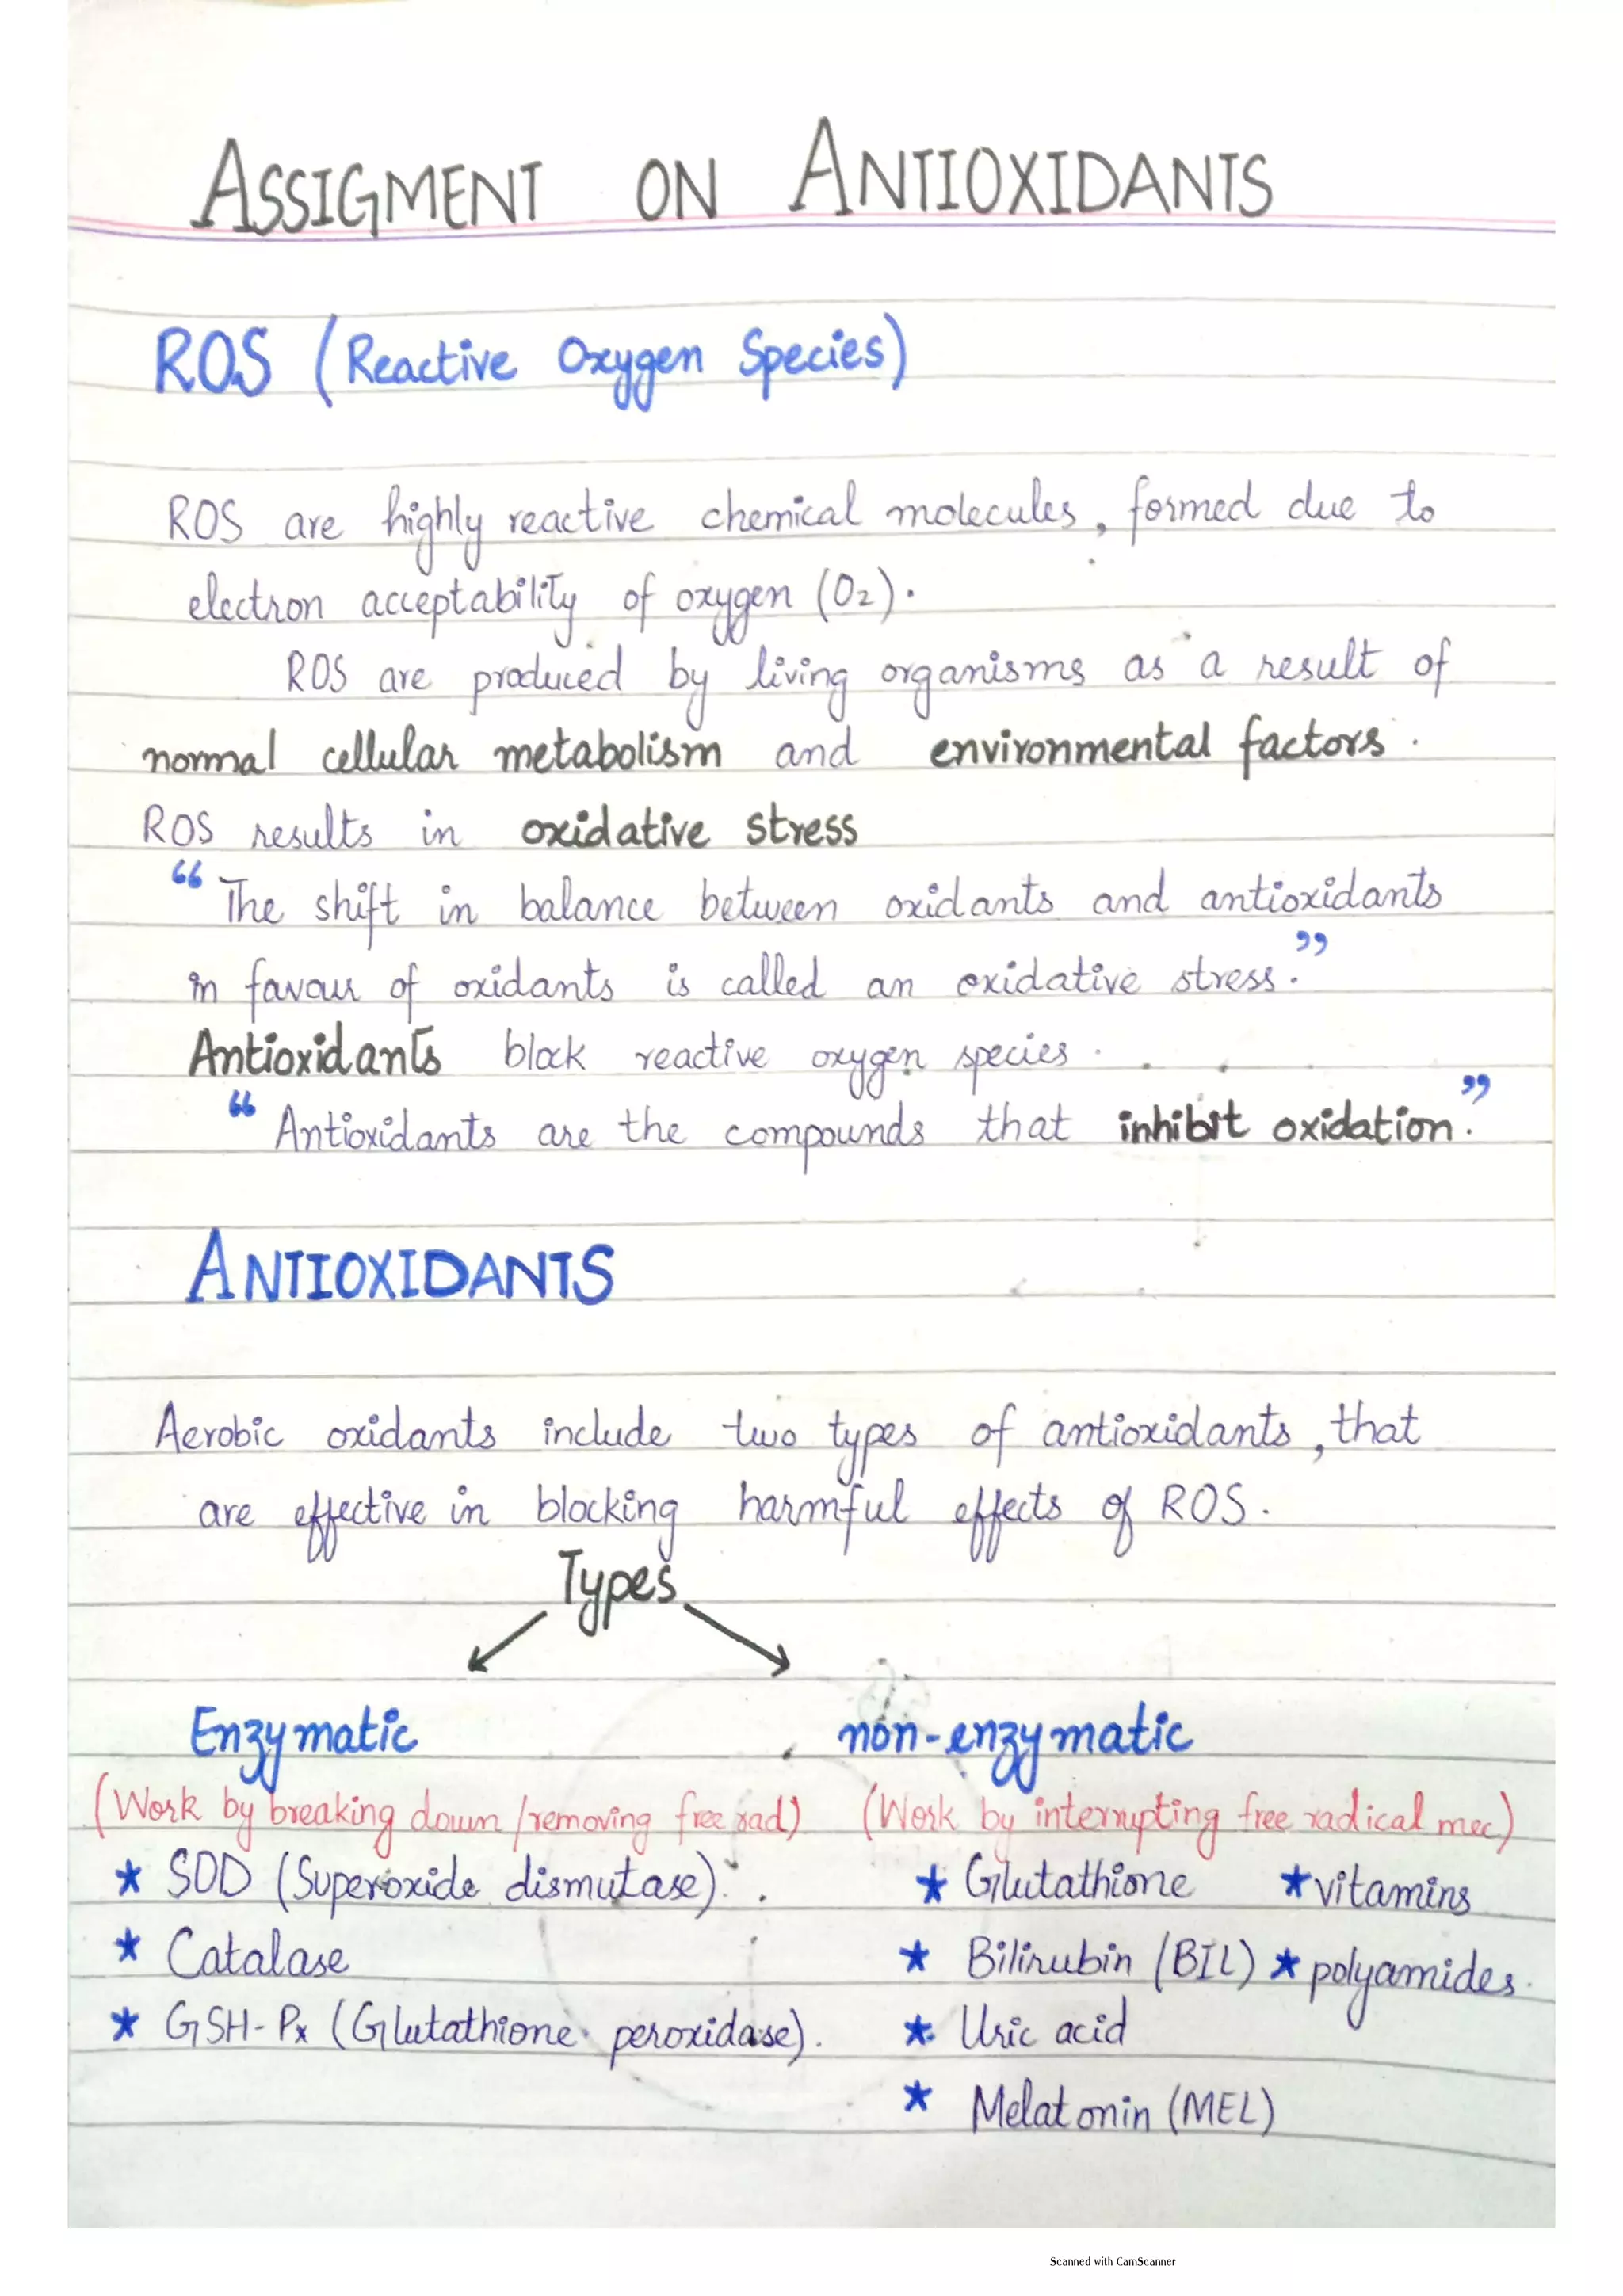 ASSIGMENT ON ANTIOXIDANTS
ROS (Reactive Oxygen Species)
ROS are highly reactive chemical molecules, formed due to
electron acceptability of oxygen (O2).
ROS are produced by living organisms as a result of
normal cellular metabolism and environmental factors.
ROS results in oxidative stress
“The shift in balance between oxidants and antioxidants
in favour of oxidants is called an oxidative stress.”
Antioxidants block reactive oxygen species.
“Antioxidants are the compounds that inhibit oxidation.”
ANTIOXIDANTS
Aerobic oxidants include two types of antioxidants, that
are effective in blocking harmful effects of ROS.
Types
Enzymatic
(Work by breaking down/removing free rad)
* SOD (Superoxide dismutase).
* Catalase
* GSH-Px (Glutathione peroxidase).
non-enzymatic
(Work by interrupting free radical mec)
* Glutathione * vitamins
* Bilirubin (BIL) * polyamides.
* Uric acid
* Melatonin (MEL)
Scanned with CamScanner